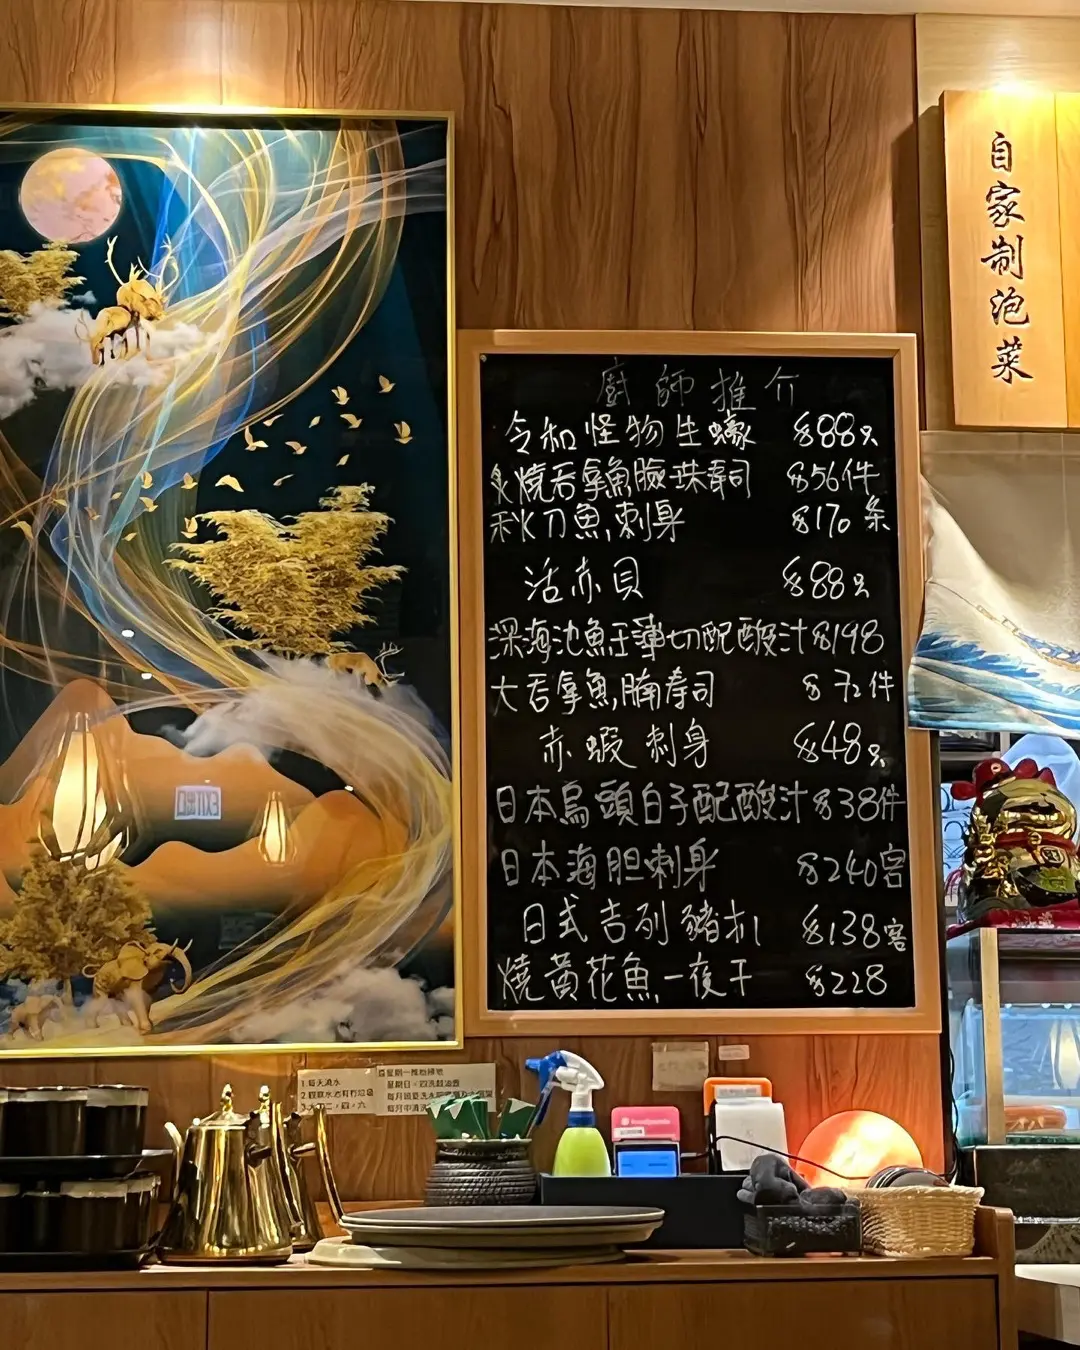 廚師推介
令和怪物生蠔 $88只
炙燒吞拿魚臉珠壽司 $56件
秋刀魚刺身 $170条
活赤貝 $88只
深海池魚王薄切配酸汁 $198
大吞拿魚腩壽司 $72件
赤蝦刺身 $48只
日本烏頭白子配酸汁 $38件
日本海胆刺身 $240客
日式吉列豬扒 $138客
燒黃花魚一夜干 $228
自家制泡菜